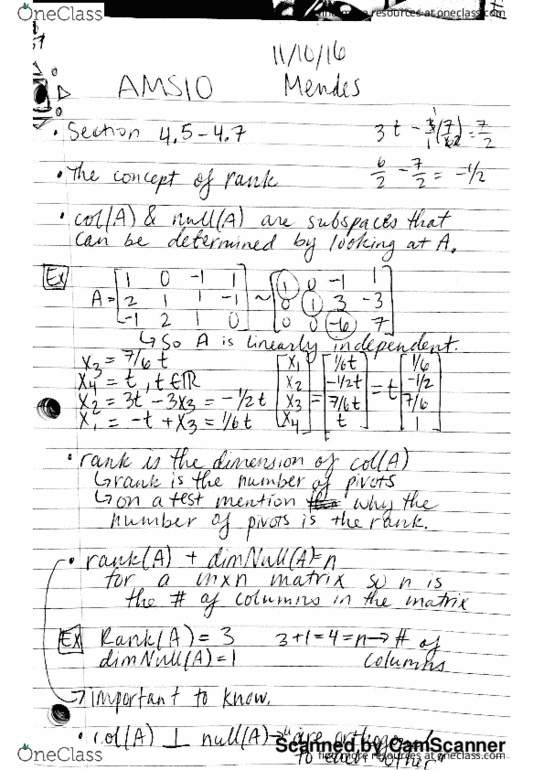 OneClass
find more resources at oneclass.com
11/10/16
AMS10 Mendes
• Section 4.5-4.7
3t - 3(7/6t) = 7/2
6/2 - 7/2 = -1/2
• The concept of rank
• col(A) & null(A) are subspaces that
can be determined by looking at A.
Ex
A = [1 0 -1 1; 2 1 1 -1; -1 2 1 0] ~ [1 0 -1 1; 0 1 3 -3; 0 0 -6 7]
↳ So A is linearly independent.
x3 = 7/6 t
x4 = t, t∈ℝ
x2 = 3t - 3x3 = -1/2 t
x1 = -t + x3 = 1/6 t
[x1; x2; x3; x4] = [1/6t; -1/2t; 7/6t; t] = t [1/6; -1/2; 7/6; 1]
• rank is the dimension of col(A)
↳ rank is the number of pivots
↳ on a test mention why the
number of pivots is the rank.
• rank(A) + dimNull(A)=n
for a mxn matrix so n is
the # of columns in the matrix
Ex Rank(A) = 3 3+1=4=n→ # of
dimNull(A)=1 columns
→ important to know.
• col(A) ⊥ null(A) → "are orthogonal
to each other"
Scanned by CamScanner
OneClass
find more resources at oneclass.com